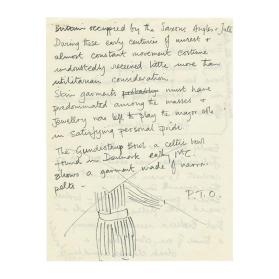 Britain occupied by the Saxons Angles & Jutes
During these early centuries of unrest &
almost constant movement costume
undoubtedly received little more than
utilitarian consideration.
Skin garments probably must have
predominated among the masses &
Jewellery was left to play the major role
in satisfying personal pride.
The Gundestrup Bowl a celtic bowl
found in Denmark early 1st C
shows a garment made of narrow
pelts -
P.T.O.